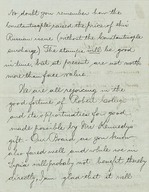 not known. Somehow how the
Constantinople raised the price of this
Russian issue (without the Constantinople
surcharge). The stamps will be good
in time, but at present are not worth
more than face value.
We are all rejoicing in the
good fortune of Robert College
and its opportunities for good
made possible by Mr. Kennedy's
gift. Our Board was also kindly
remembered and while we in
Syria will probably not benefit thereby
directly, I am glad that it will